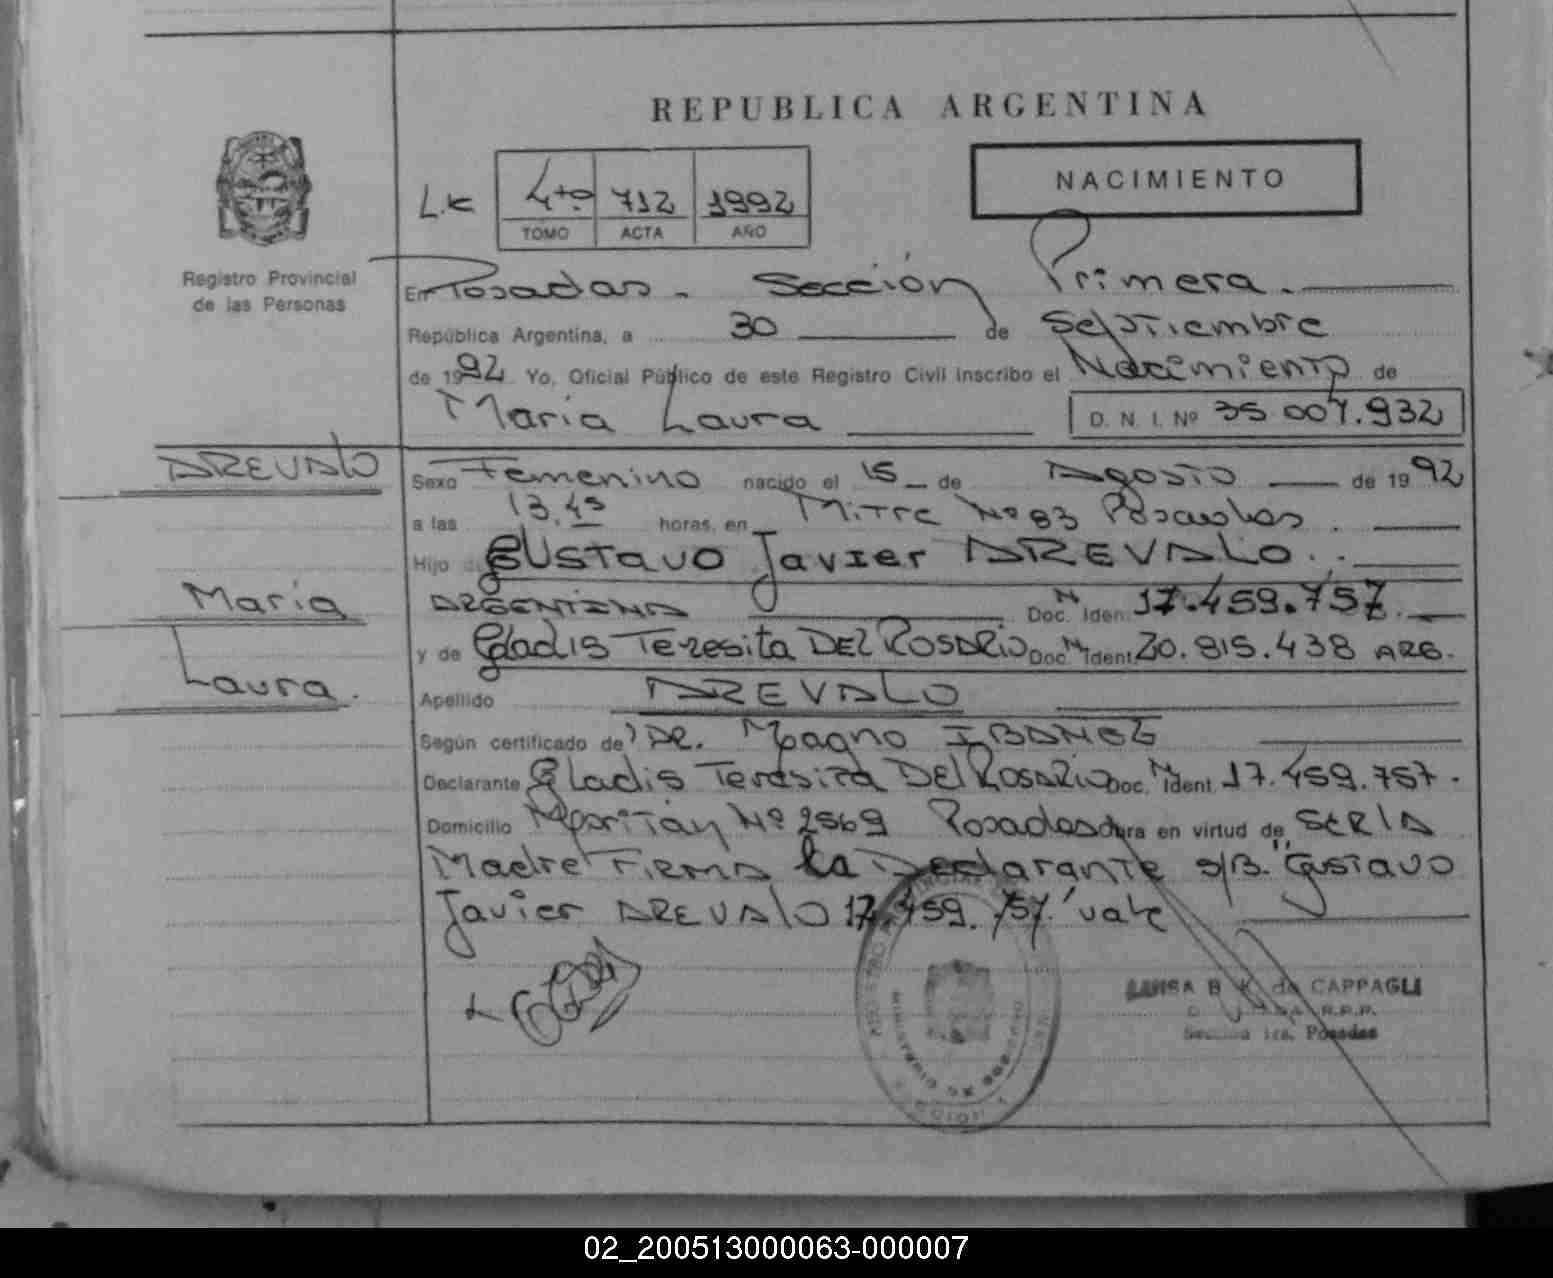 REPUBLICA ARGENTINA
NACIMIENTO
L.K 4to 712 1992
TOMO ACTA AÑO
Registro Provincial
de las Personas
En Posadas. Sección Primera.
República Argentina, a 30 de Septiembre
de 1992 Yo, Oficial Público de este Registro Civil inscribo el Nacimiento de
Maria Laura D. N. I. Nº 35.007.932
AREVALO
Sexo Femenino nacido el 15 de Agosto de 1992
a las 13,45 horas, en Mitre Nº 83 Posadas.
Hijo de GUSTAVO Javier AREVALO.
María
ARGENTINA Doc. Iden. 17.459.757.
y de Gladis Teresita DEL ROSARIO Doc. Ident 20.815.438 ARG.
Laura.
Apellido AREVALO
Según certificado de DR. Magno IBAÑEZ
Declarante Gladis Teresita DEL ROSARIO Doc. Ident. 17.459.757.
Domicilio Nº 2569 Posadas obra en virtud de SER LA
Madre FIRMA la Declarante s/B. "Gustavo
Javier AREVALO 17.459.757." vale
LUISA B. K. de CAPPAGLI
R.P.P.
Sección 1ra. Posadas
02_200513000063-000007